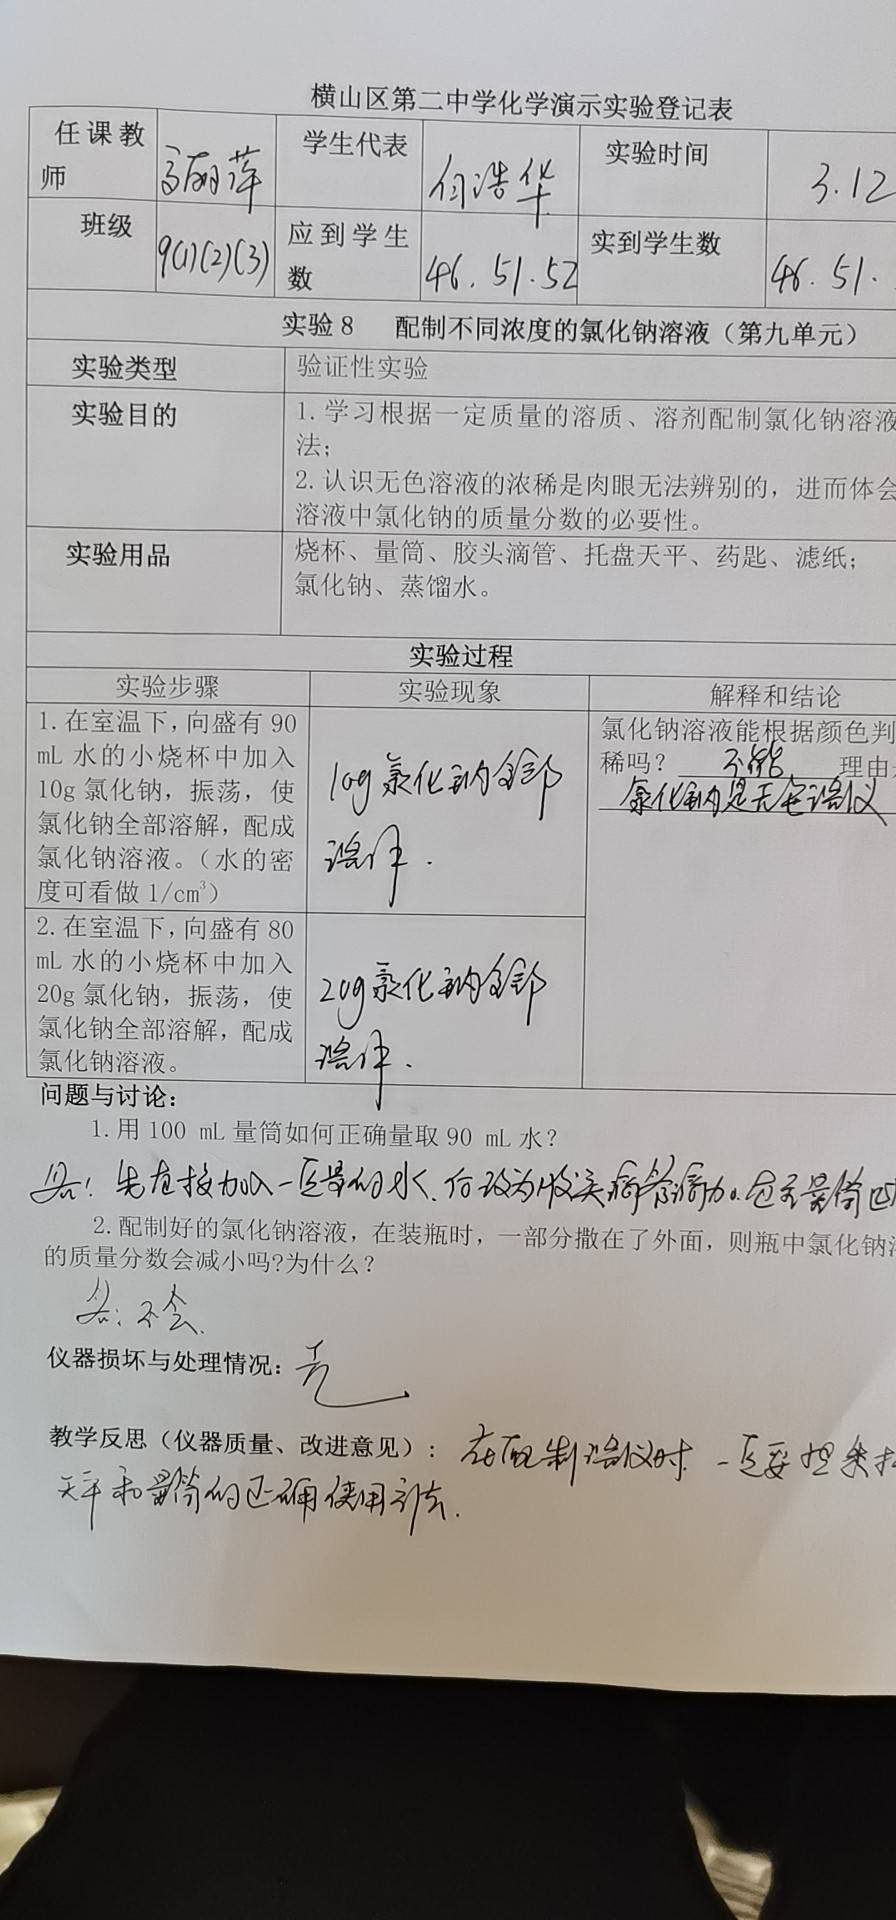 横山区第二中学化学演示实验登记表
任课教师 高丽萍 学生代表 浩华 实验时间 3.12
班级 9(1)(2)(3) 应到学生数 46.51.52 实到学生数 46.51.
实验8 配制不同浓度的氯化钠溶液（第九单元）
实验类型 验证性实验
实验目的 1.学习根据一定质量的溶质、溶剂配制氯化钠溶液
法；
2.认识无色溶液的浓稀是肉眼无法辨别的，进而体会
溶液中氯化钠的质量分数的必要性。
实验用品 烧杯、量筒、胶头滴管、托盘天平、药匙、滤纸；
氯化钠、蒸馏水。
实验过程
实验步骤 实验现象 解释和结论
1.在室温下，向盛有90
mL水的小烧杯中加入
10g氯化钠，振荡，使
氯化钠全部溶解，配成
氯化钠溶液。（水的密
度可看做1/cm³）
10g氯化钠全部
溶解.
氯化钠溶液能根据颜色判
稀吗？ 不能 理由
氯化钠是无色溶液
2.在室温下，向盛有80
mL水的小烧杯中加入
20g氯化钠，振荡，使
氯化钠全部溶解，配成
氯化钠溶液。
20g氯化钠全部
溶解.
问题与讨论：
1.用100 mL量筒如何正确量取90 mL水？
答：先直接加入一定量的水，后改为胶头滴管滴加。
2.配制好的氯化钠溶液，在装瓶时，一部分撒在了外面，则瓶中氯化钠
的质量分数会减小吗?为什么？
答：不会.
仪器损坏与处理情况：无
教学反思（仪器质量、改进意见）：在配制溶液时.一定要
天平和量筒的正确使用方法.